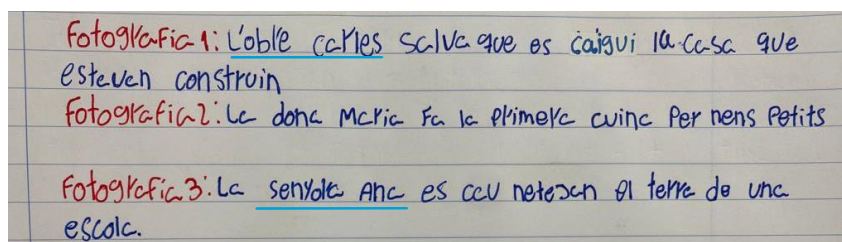 Fotografia 1: L'obre carles salva que es caigui la casa que
esteven construin
Fotografia 2: La dona Maria Fa la primera cuina Per nens Petits
Fotografia 3: La senyora Ana es cau netejan el terra de una
escola.